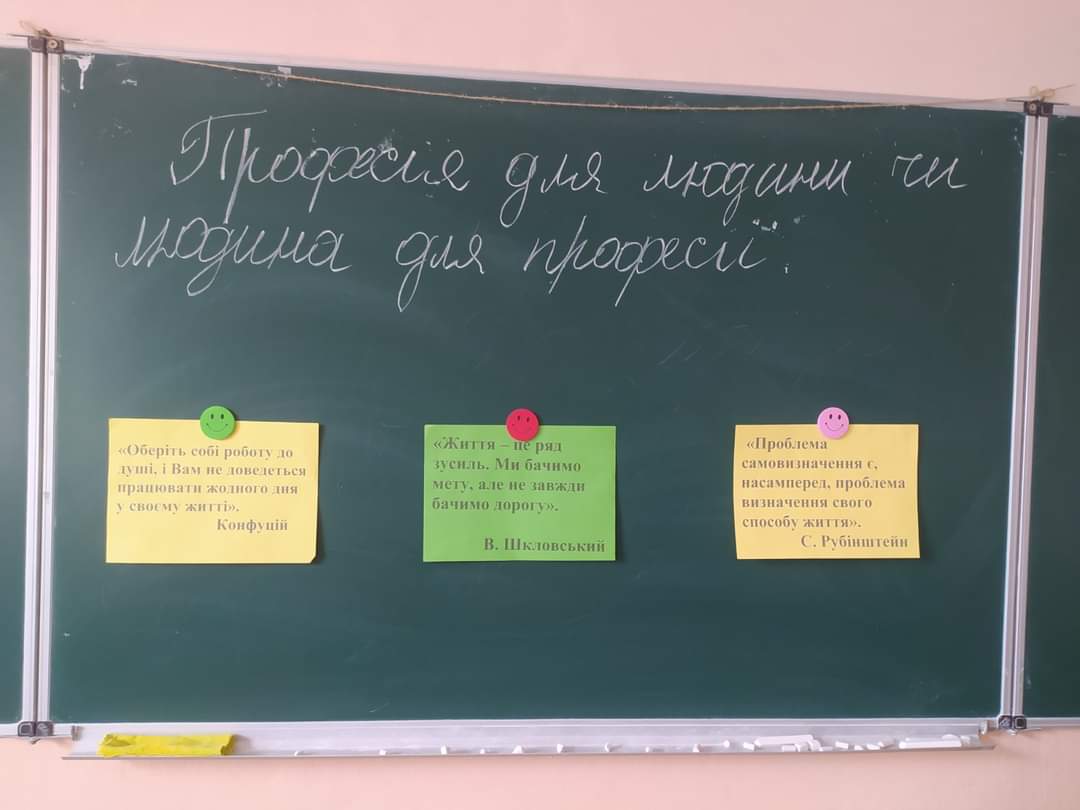 Професія для людини чи
людина для професії.
«Оберіть собі роботу до
душі, і Вам не доведеться
працювати жодного дня
у своєму житті».
Конфуцій
«Життя – це ряд
зусиль. Ми бачимо
мету, але не завжди
бачимо дорогу».
В. Шкловський
«Проблема
самовизначення є,
насамперед, проблема
визначення свого
способу життя».
С. Рубінштейн